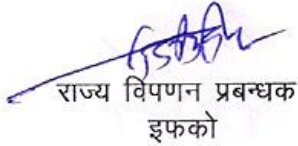 राज्य विपणन प्रबन्धक
इफको